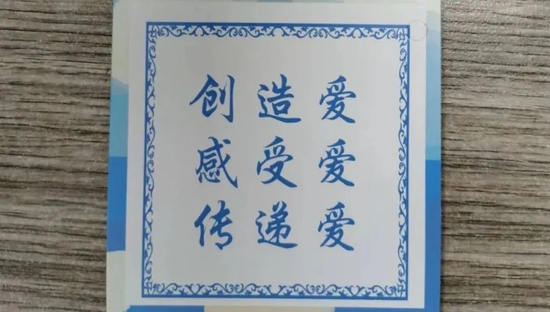 创造爱
感受爱
传递爱